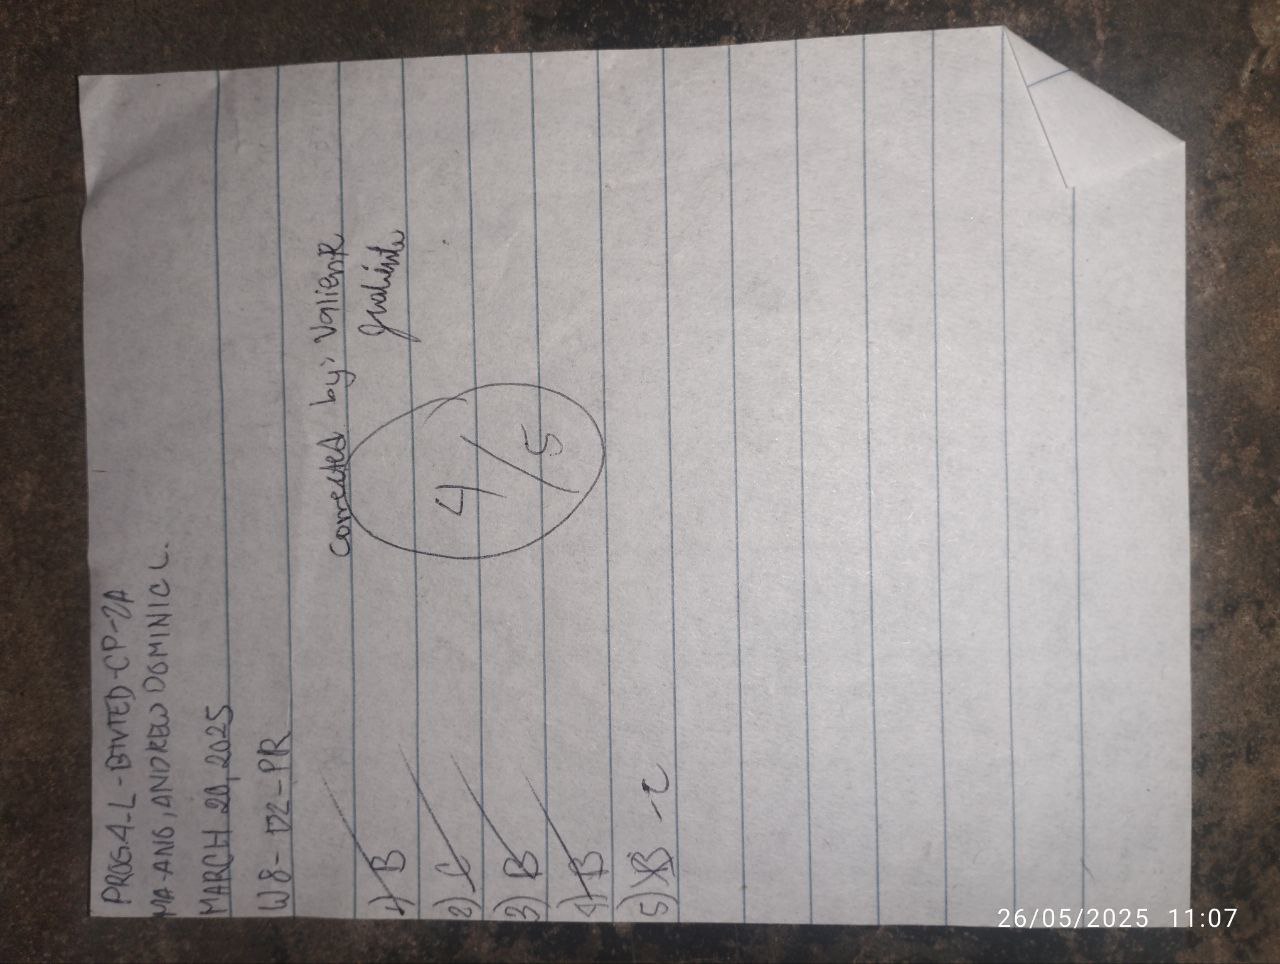 PROG.4-L-BTVTED-CP-2A
MA-ANO, ANDREW DOMINIC L.
MARCH 20, 2025
W8- D2-PR
corrected by: Valien R
1) B
2) C
3) B
4) B
5) B - C
4/5
26/05/2025 11:07